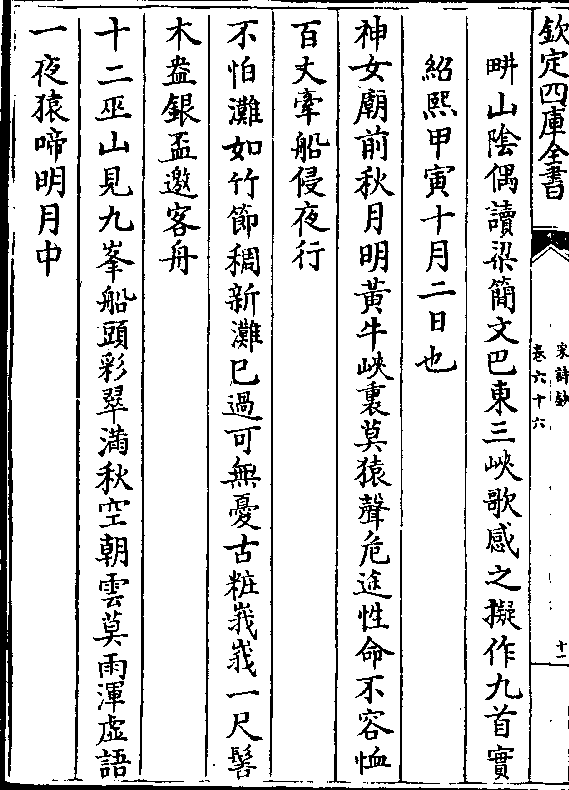 欽定四庫全書
宋詩鈔
卷六十六
十二
畊山陰偶讀梁簡文巴東三峽歌感之擬作九首實
紹熙甲寅十月二日也
神女廟前秋月明黃牛峽裏莫猿聲危途性命不容恤
百丈牽船侵夜行
不怕灘如竹節稠新灘已過可無憂古粧峩峩一尺髻
木盎銀盃邀客舟
十二巫山見九峯船頭彩翠滿秋空朝雲莫雨渾虛語
一夜猿啼明月中